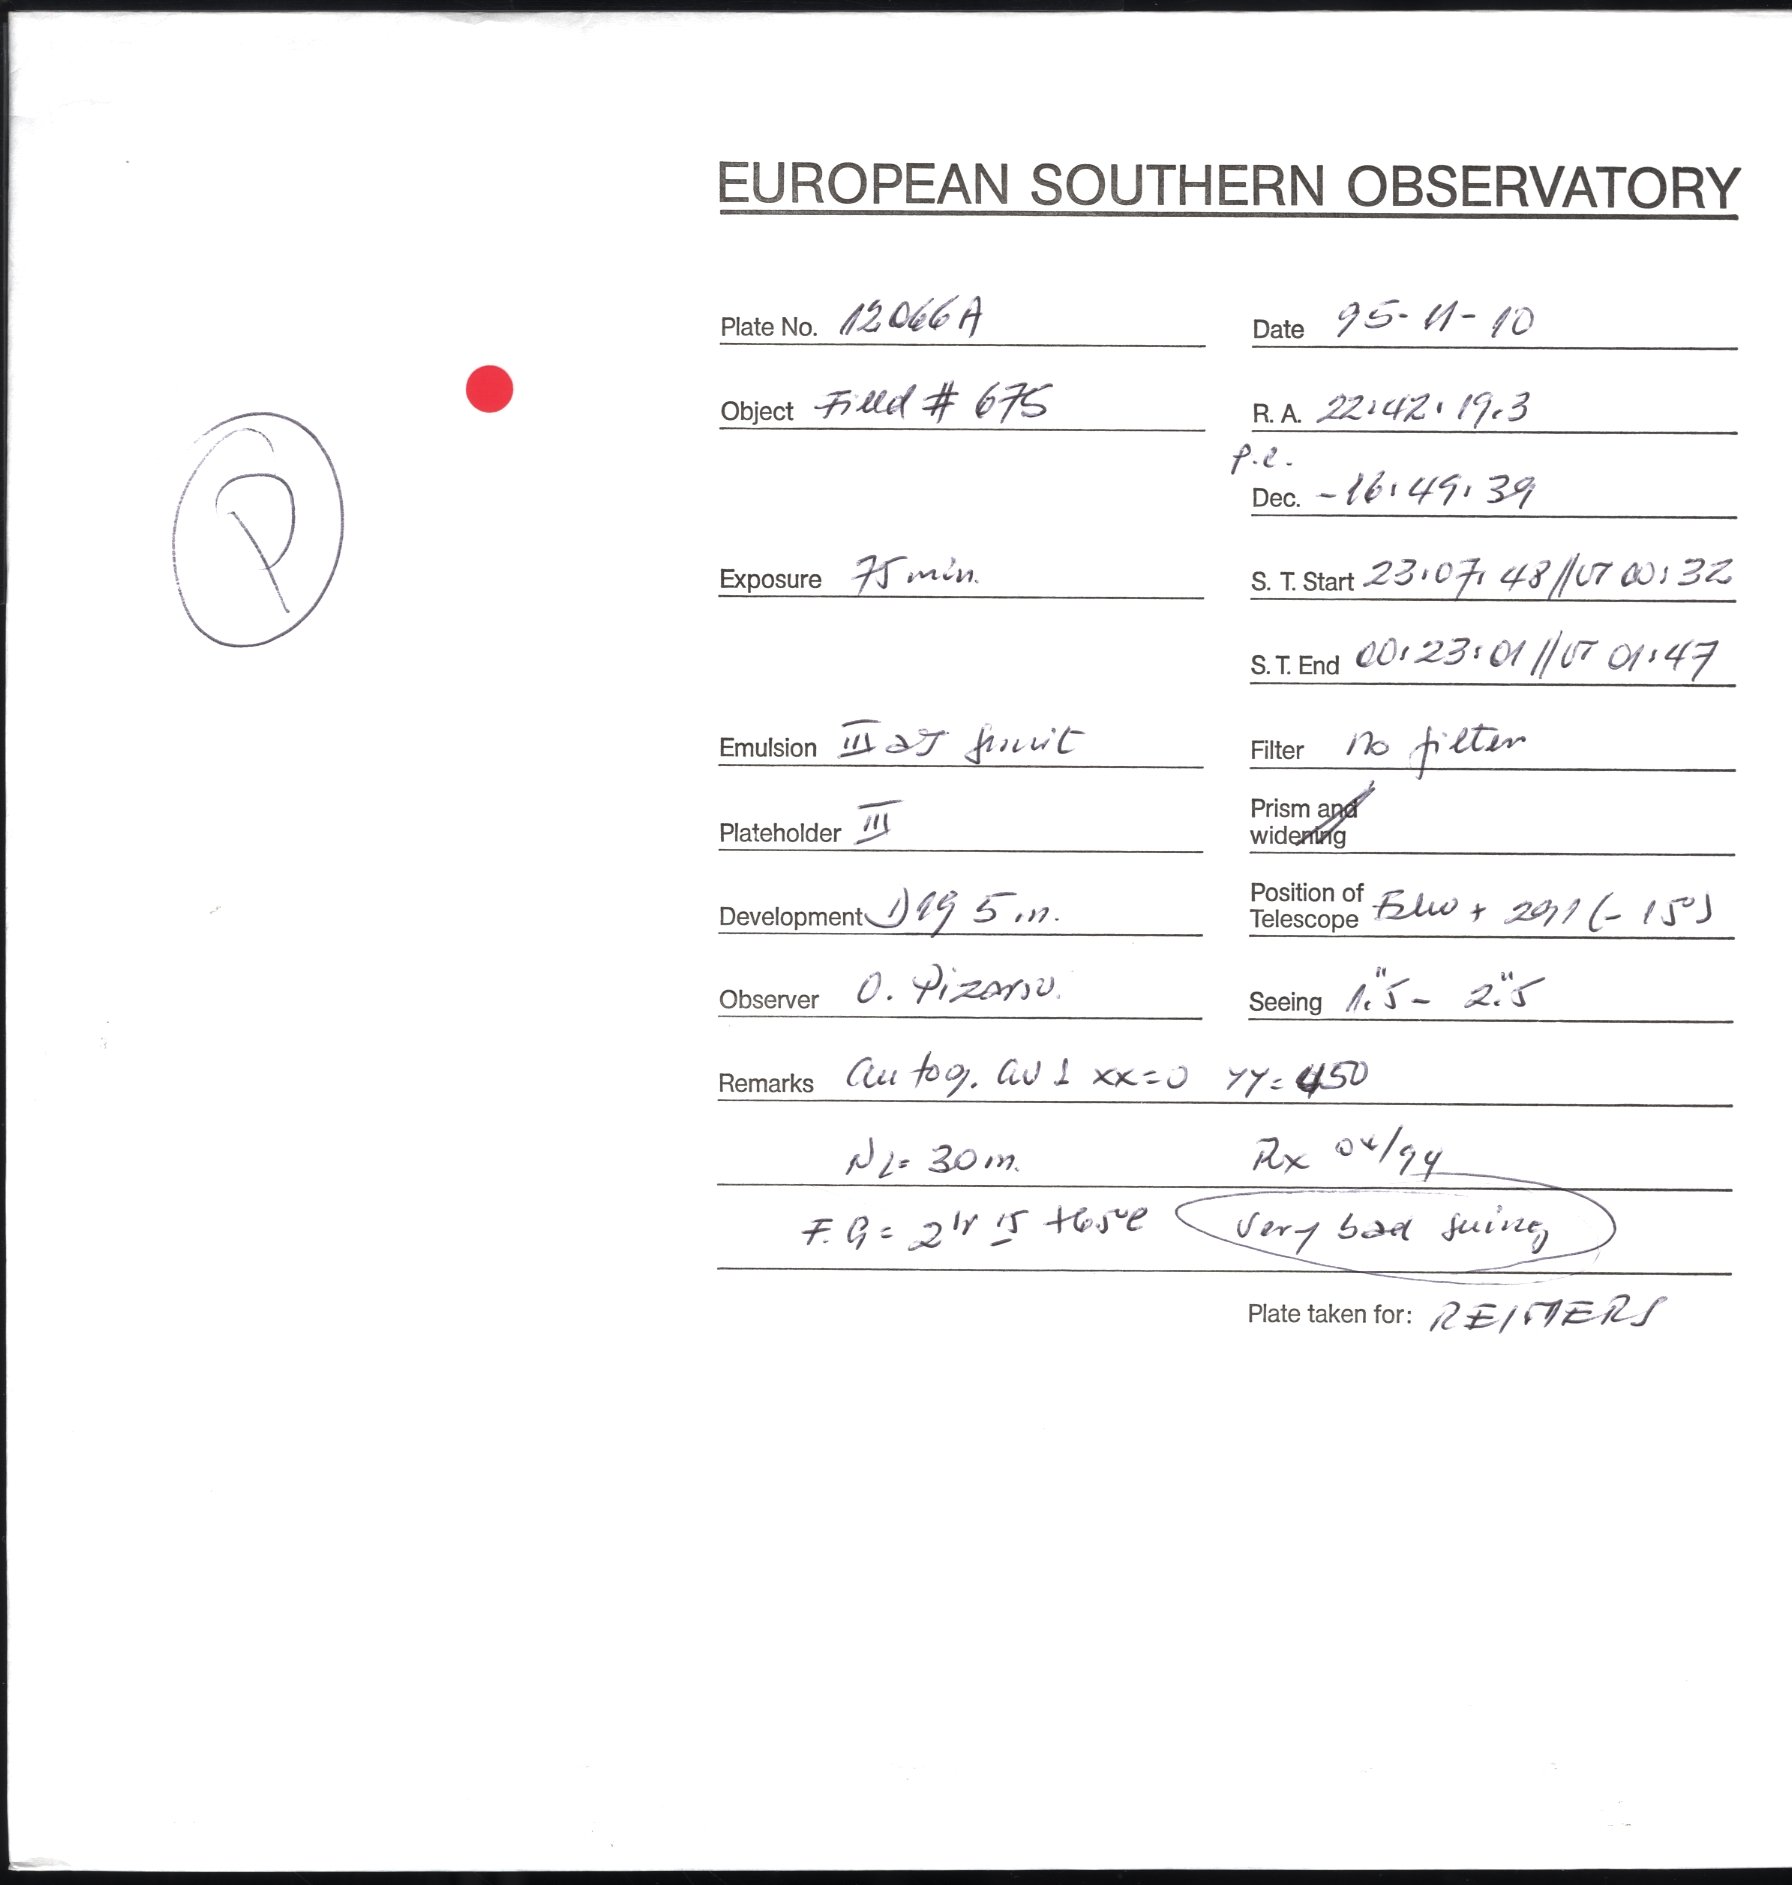 EUROPEAN SOUTHERN OBSERVATORY
Plate No. 12066A Date 95-11-10
Object Field # 675 R. A. 22:42:19.3
p.e.
Dec. -16:49:39
Exposure 75 min. S. T. Start 23:07:48//UT 00:32
S. T. End 00:23:01//UT 01:47
Emulsion III aJ Filter no filter
Plateholder III Prism and widening
Development D19 5 m. Position of Telescope + 29,1 (-15°)
Observer O. Pizarro. Seeing 1."5 - 2."5
Remarks Autog. xx=0 yy=450
NL= 30m. Rx 04/94
F. G = 2 15 Very bad
Plate taken for: REIMERS
P